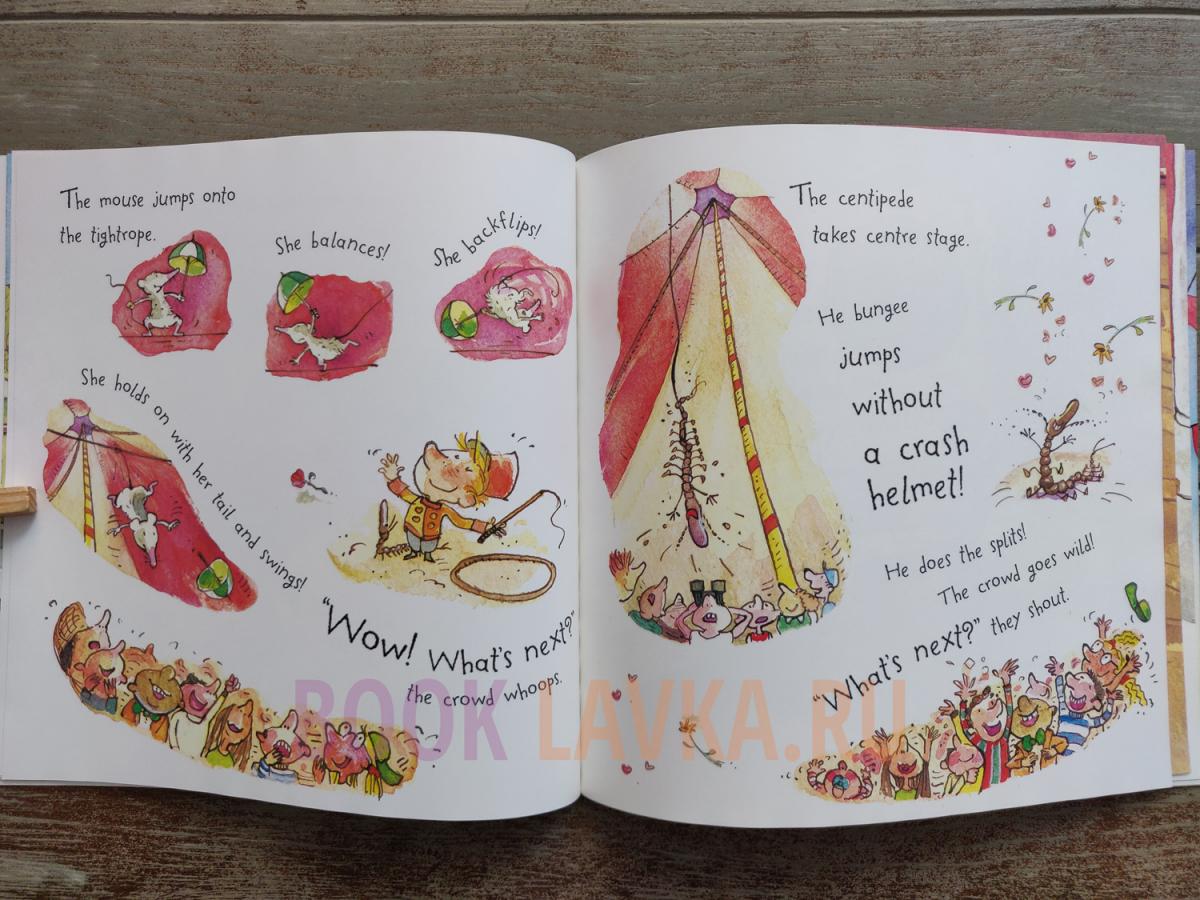 The mouse jumps onto
the tightrope.
She balances!
She backflips!
She holds on with her tail and swings!
"Wow! What's next?"
the crowd whoops.
The centipede
takes centre stage.
He bungee
jumps
without
a crash
helmet!
He does the splits!
The crowd goes wild!
"What's next?" they shout.
BOOK LAVKA.RU